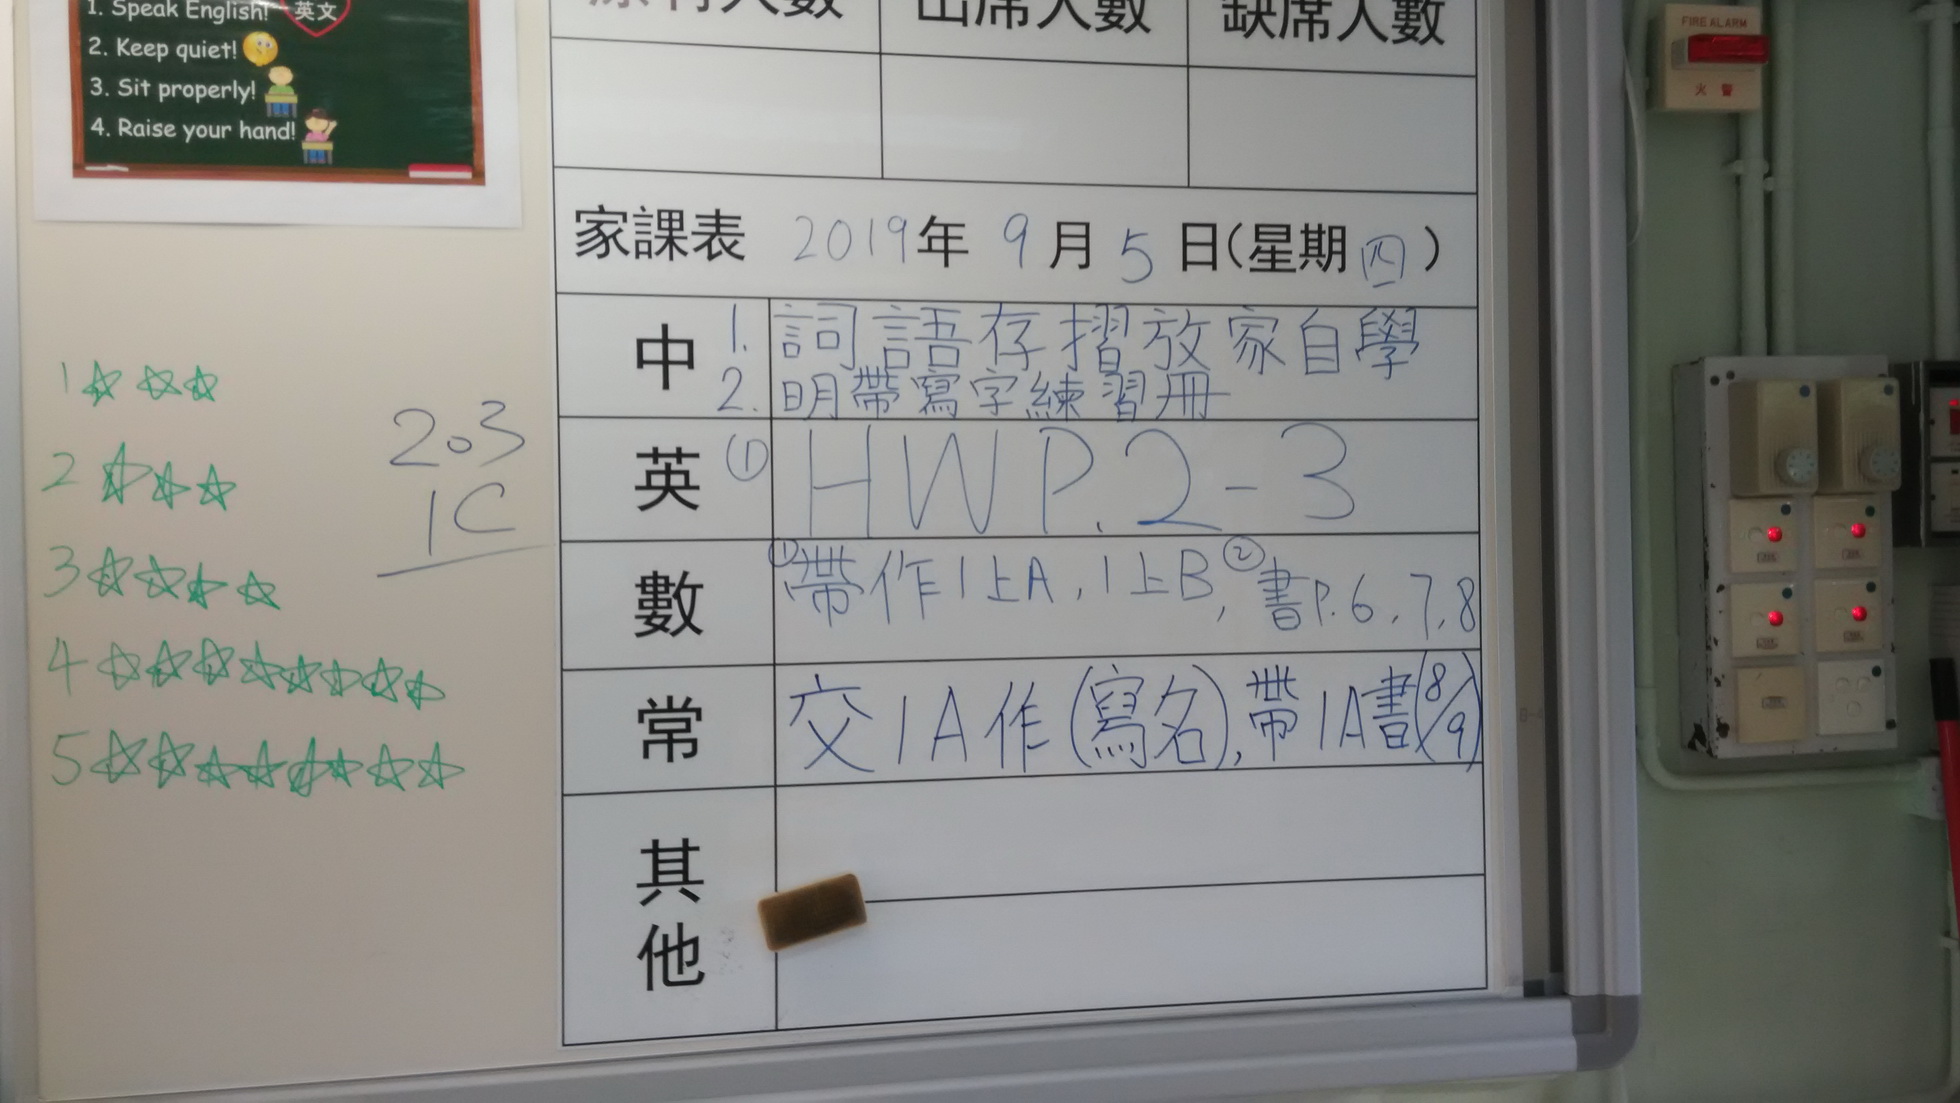 1. Speak English!
英文
2. Keep quiet!
3. Sit properly!
4. Raise your hand!
原有人數 出席人數 缺席人數
家課表 2019年 9月 5日(星期四)
中 1. 詞語存摺放家自學
2. 明帶寫字練習冊
英 ① HW P.2-3
數 ①帶作1上A, 1上B, ②書P.6, 7, 8
常 交1A作(寫名), 帶1A書(8/9)
其他
1
2
3
4
5
203
1C
FIRE ALARM
火警